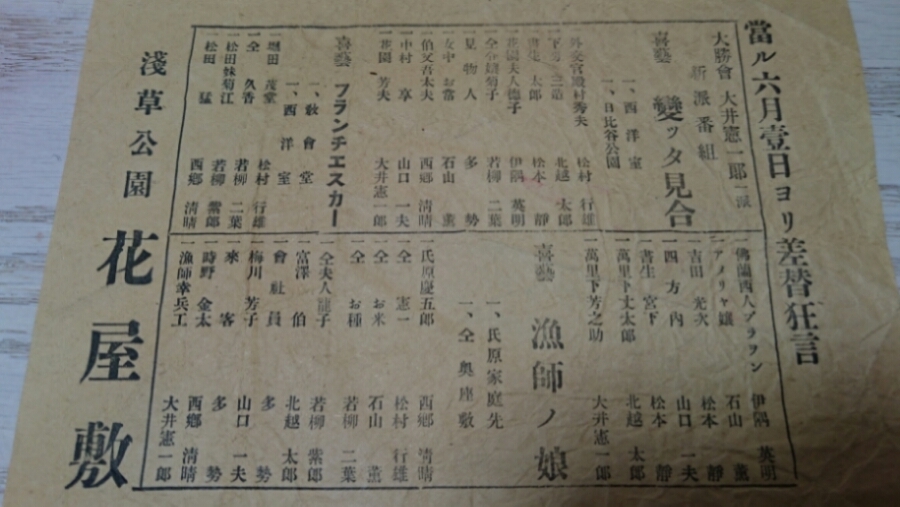 當ル六月壹日ヨリ差替狂言
大勝會 大井憲一郎一派
新派番組
喜藝 變ッタ見合
一、西洋室
一、日比谷公園
外交官殿村秀夫 松村 行雄
北越 太郎
書生 太郎 松本 靜
花園夫人徳子 伊隅 英明
若柳 二葉
一見物人 多勢
一女中 お常 石山 薫
一伯父吾太夫 西郷 清晴
一中村 享 山口 一夫
一花園 芳夫 大井憲一郎
喜藝 フランチエスカー
一、敎會堂
一、西洋室
一堀田 茂堂 松村 行雄
一仝 久香 若柳 二葉
一松田妹菊江 若柳 紫郎
一松田 猛 西郷 清晴
佛蘭西人ブラヲン 伊隅 英明
一アメリヤ孃 石山 薫
一吉田 光次 松本 靜
一四方 内 山口 一夫
一書生 宮下 松本 靜
一萬里下丈太郎 北越 太郎
一萬里下芳之助 大井憲一郎
喜藝 漁師ノ娘
一、氏原家庭先
一、仝奥座敷
一氏原慶五郎 西郷 清晴
一仝 憲一 松村 行雄
一仝 お米 石山 薫
一仝 お種 若柳 二葉
一仝夫人龍子 若柳 紫郎
一富澤 伯 北越 太郎
一會社員 多勢
一梅川 芳子 山口 一夫
一來客 多勢
一時野 金太 西郷 清晴
一漁師幸兵工 大井憲一郎
淺草公園 花屋敷